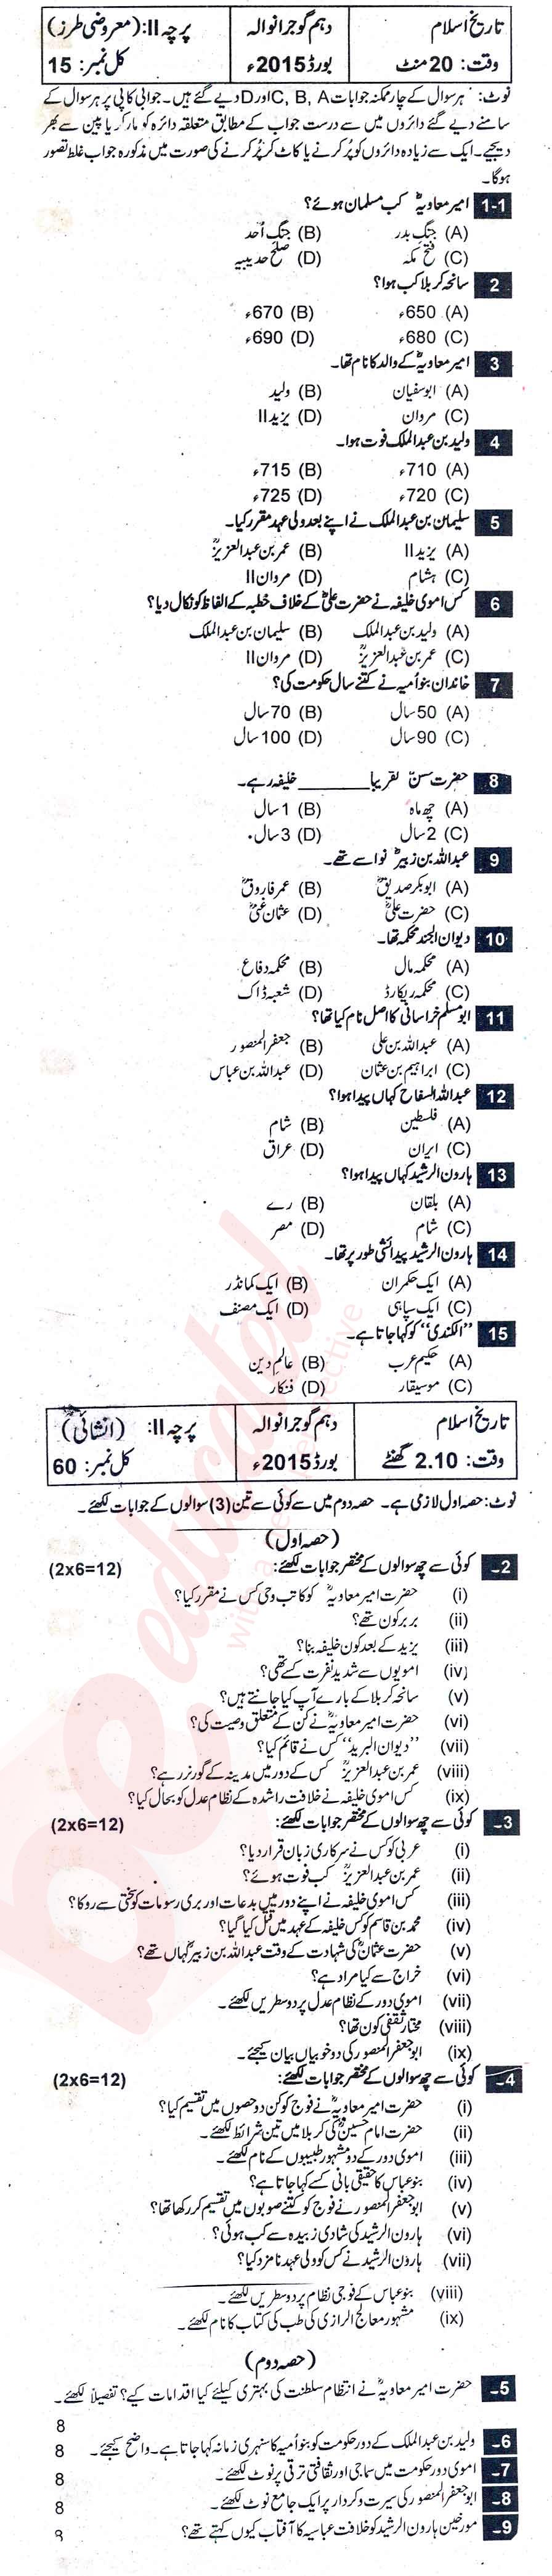 تاریخ اسلام
دہم گوجرانوالہ
پرچہ II: (معروضی طرز)
وقت: 20 منٹ
بورڈ 2015ء
کل نمبر: 15
نوٹ: ہر سوال کے چار ممکنہ جوابات C, B, A اور D دیے گئے ہیں۔ جوابی کاپی پر ہر سوال کے
سامنے دیے گئے دائروں میں سے درست جواب کے مطابق متعلقہ دائرہ کو مارکر یا پین سے بھر
دیجیے۔ ایک سے زیادہ دائروں کو پُر کرنے یا کاٹ کر پُر کرنے کی صورت میں مذکورہ جواب غلط تصور
ہوگا۔
1-1 امیر معاویہؓ کب مسلمان ہوئے؟
(A) جنگِ بدر (B) جنگِ اُحد
(C) فتح مکہ (D) صلح حدیبیہ
2 سانحہ کربلا کب ہوا؟
(A) 650ء (B) 670ء
(C) 680ء (D) 690ء
3 امیر معاویہؓ کے والد کا نام تھا۔
(A) ابوسفیان (B) ولید
(C) مروان (D) یزید II
4 ولید بن عبدالملک فوت ہوا۔
(A) 710ء (B) 715ء
(C) 720ء (D) 725ء
5 سلیمان بن عبدالملک نے اپنے بعد ولی عہد مقرر کیا۔
(A) یزید II (B) عمر بن عبدالعزیزؒ
(C) ہشام (D) مروان II
6 کس اموی خلیفہ نے حضرت علیؓ کے خلاف خطبہ کے الفاظ کو نکال دیا؟
(A) ولید بن عبدالملک (B) سلیمان بن عبدالملک
(C) عمر بن عبدالعزیزؒ (D) مروان II
7 خاندان بنو اُمیہ نے کتنے سال حکومت کی؟
(A) 50 سال (B) 70 سال
(C) 90 سال (D) 100 سال
8 حضرت حسنؓ تقریبا ________ خلیفہ رہے۔
(A) چھ ماہ (B) 1 سال
(C) 2 سال (D) 3 سال
9 عبداللہ بن زبیرؓ نواسے تھے۔
(A) ابوبکر صدیقؓ (B) عمر فاروقؓ
(C) حضرت علیؓ (D) عثمان غنیؓ
10 دیوان الجند محکمہ تھا۔
(A) محکمہ مال (B) محکمہ دفاع
(C) محکمہ ریکارڈ (D) شعبہ ڈاک
11 ابو مسلم خراسانی کا اصل نام کیا تھا؟
(A) عبداللہ بن علی (B) جعفر المنصور
(C) ابراہیم بن عثمان (D) عبداللہ بن عباس
12 عبداللہ السفاح کہاں پیدا ہوا؟
(A) فلسطین (B) شام
(C) ایران (D) عراق
13 ہارون الرشید کہاں پیدا ہوا؟
(A) بلقان (B) رے
(C) شام (D) مصر
14 ہارون الرشید پیدائشی طور پر تھا۔
(A) ایک حکمران (B) ایک کمانڈر
(C) ایک سپاہی (D) ایک مصنف
15 "الکندی" کو کہا جاتا ہے۔
(A) حکیم عرب (B) عالمِ دین
(C) موسیقار (D) فنکار
تاریخ اسلام
دہم گوجرانوالہ
پرچہ II: (انشائی)
وقت: 2.10 گھنٹے
بورڈ 2015ء
کل نمبر: 60
نوٹ: حصہ اول لازمی ہے۔ حصہ دوم میں سے کوئی سے تین (3) سوالوں کے جوابات لکھئے۔
(حصہ اول)
2۔ کوئی سے چھ سوالوں کے مختصر جوابات لکھئے: (2x6=12)
(i) حضرت امیر معاویہؓ کو کاتب وحی کس نے مقرر کیا؟
(ii) بربر کون تھے؟
(iii) یزید کے بعد کون خلیفہ بنا؟
(iv) امویوں سے شدید نفرت کسے تھی؟
(v) سانحہ کربلا کے بارے آپ کیا جانتے ہیں؟
(vi) حضرت امیر معاویہؓ نے کن کے متعلق وصیت کی؟
(vii) "دیوان البرید" کس نے قائم کیا؟
(viii) عمر بن عبدالعزیزؒ کس کے دور میں مدینہ کے گورنر رہے؟
(ix) کس اموی خلیفہ نے خلافت راشدہ کے نظام عدل کو بحال کیا؟
3۔ کوئی سے چھ سوالوں کے مختصر جوابات لکھئے: (2x6=12)
(i) عربی کو کس نے سرکاری زبان قرار دیا؟
(ii) عمر بن عبدالعزیزؒ کب فوت ہوئے؟
(iii) کس اموی خلیفہ نے اپنے دور میں بدعات اور بری رسومات کو سختی سے روکا؟
(iv) محمد بن قاسم کو کس خلیفہ کے عہد میں قتل کیا گیا؟
(v) حضرت عثمانؓ کی شہادت کے وقت عبداللہ بن زبیرؓ کہاں تھے؟
(vi) خراج سے کیا مراد ہے؟
(vii) اموی دور کے نظام عدل پر دو سطریں لکھئے۔
(viii) مختار ثقفی کون تھا؟
(ix) ابو جعفر المنصور کی دو خوبیاں بیان کیجئے۔
4۔ کوئی سے چھ سوالوں کے مختصر جوابات لکھئے: (2x6=12)
(i) حضرت امیر معاویہؓ نے فوج کو کن دو حصوں میں تقسیم کیا؟
(ii) حضرت امام حسینؓ کی کربلا میں تین شرائط لکھئے۔
(iii) اموی دور کے دو مشہور طبیبوں کے نام لکھئے۔
(iv) بنو عباس کا حقیقی بانی کسے کہا جاتا ہے؟
(v) ابو جعفر المنصور نے فوج کو کتنے صوبوں میں تقسیم کر رکھا تھا؟
(vi) ہارون الرشید کی شادی زبیدہ سے کب ہوئی؟
(vii) ہارون الرشید نے کس کو ولی عہد نامزد کیا؟
(viii) بنو عباس کے فوجی نظام پر دو سطریں لکھئے۔
(ix) مشہور معالج الرازی کی طب کی کتاب کا نام لکھئے۔
(حصہ دوم)
5۔ حضرت امیر معاویہؓ نے انتظام سلطنت کی بہتری کیلئے کیا اقدامات کیے؟ تفصیلاً لکھئے۔
8
6۔ ولید بن عبدالملک کے دور حکومت کو بنو اُمیہ کا سنہری زمانہ کہا جاتا ہے۔ واضح کیجئے۔ 8
7۔ اموی دور حکومت میں سماجی اور ثقافتی ترقی پر نوٹ لکھئے۔ 8
8۔ ابو جعفر المنصور کی سیرت و کردار پر ایک جامع نوٹ لکھئے۔ 8
9۔ مورخین ہارون الرشید کو خلافت عباسیہ کا آفتاب کیوں کہتے تھے؟ 8
beeducated
with a perspective